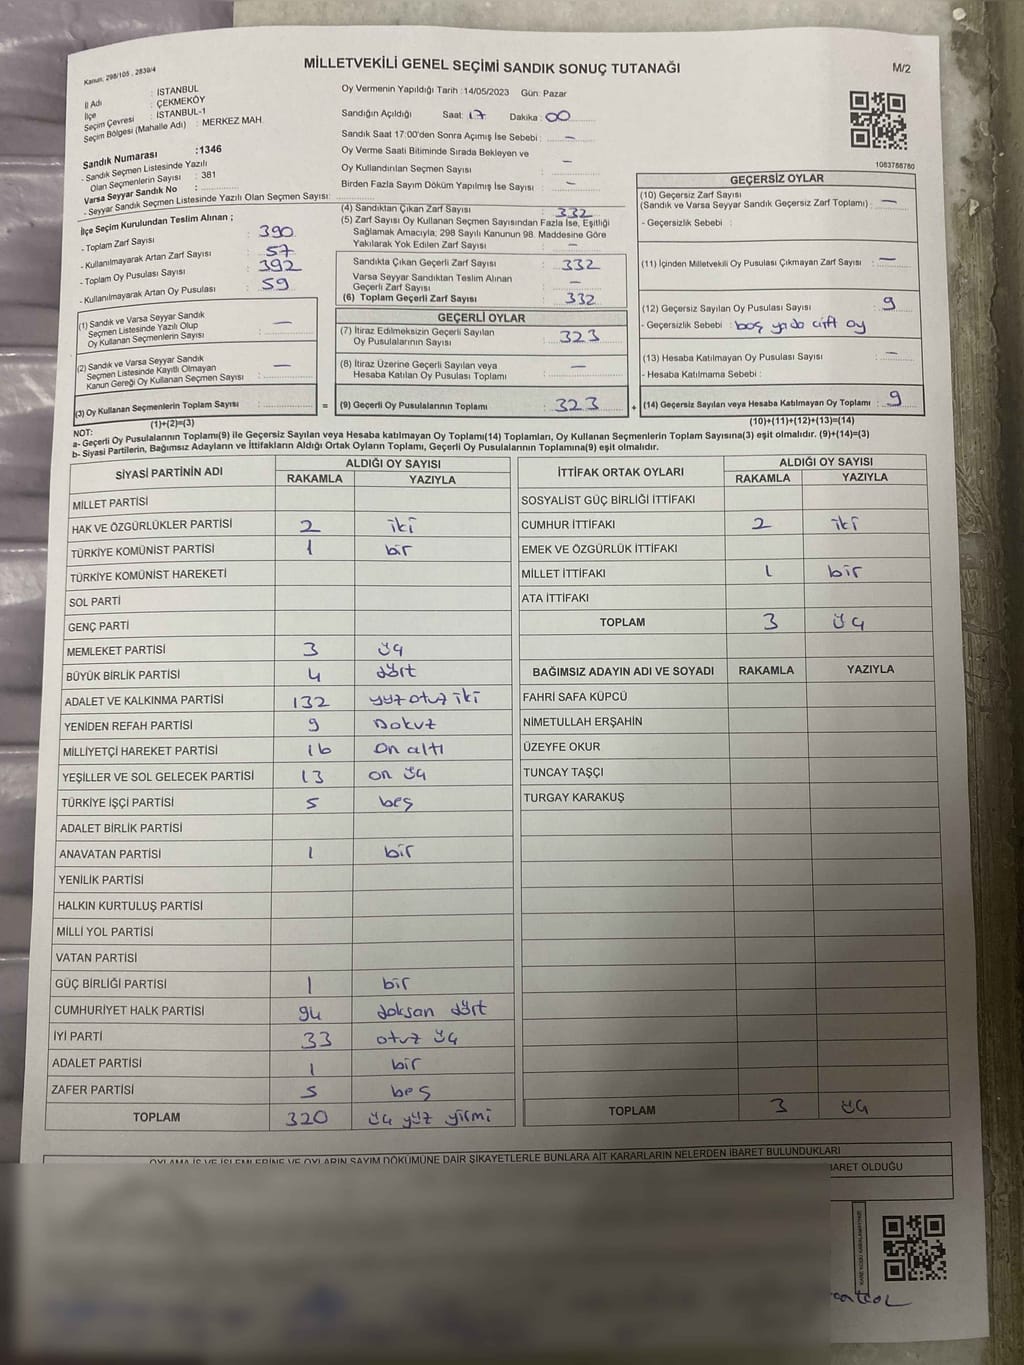 Kanun: 298/105 , 2839/4
MİLLETVEKİLİ GENEL SEÇİMİ SANDIK SONUÇ TUTANAĞI
M/2
İl Adı : İSTANBUL
İlçe : ÇEKMEKÖY
Seçim Çevresi : İSTANBUL-1
Seçim Bölgesi (Mahalle Adı) : MERKEZ MAH.
Sandık Numarası :1346
- Sandık Seçmen Listesinde Yazılı
Olan Seçmenlerin Sayısı : 381
Varsa Seyyar Sandık No :
- Seyyar Sandık Seçmen Listesinde Yazılı Olan Seçmen Sayısı:
İlçe Seçim Kurulundan Teslim Alınan ;
- Toplam Zarf Sayısı 390
- Kullanılmayarak Artan Zarf Sayısı 57
- Toplam Oy Pusulası Sayısı 392
- Kullanılmayarak Artan Oy Pusulası 59
(1) Sandık ve Varsa Seyyar Sandık
Seçmen Listesinde Yazılı Olup
Oy Kullanan Seçmenlerin Sayısı : —
(2) Sandık ve Varsa Seyyar Sandık
Seçmen Listesinde Kayıtlı Olmayan
Kanun Gereği Oy Kullanan Seçmen Sayısı : —
(3) Oy Kullanan Seçmenlerin Toplam Sayısı :
(1)+(2)=(3)
Oy Vermenin Yapıldığı Tarih :14/05/2023 Gün: Pazar
Sandığın Açıldığı Saat: 17 Dakika : 00
Sandık Saat 17:00'den Sonra Açımış İse Sebebi : —
Oy Verme Saati Bitiminde Sırada Bekleyen ve
Oy Kullandırılan Seçmen Sayısı : —
Birden Fazla Sayım Döküm Yapılmış İse Sayısı : —
(4) Sandıktan Çıkan Zarf Sayısı : 332
(5) Zarf Sayısı Oy Kullanan Seçmen Sayısından Fazla İse, Eşitliği
Sağlamak Amacıyla, 298 Sayılı Kanunun 98. Maddesine Göre
Yakılarak Yok Edilen Zarf Sayısı : —
Sandıkta Çıkan Geçerli Zarf Sayısı : 332
Varsa Seyyar Sandıktan Teslim Alınan
Geçerli Zarf Sayısı : —
(6) Toplam Geçerli Zarf Sayısı : 332
GEÇERLİ OYLAR
(7) İtiraz Edilmeksizin Geçerli Sayılan
Oy Pusulalarının Sayısı : 323
(8) İtiraz Üzerine Geçerli Sayılan veya
Hesaba Katılan Oy Pusulası Toplamı : —
= (9) Geçerli Oy Pusulalarının Toplamı : 323 +
1083786780
GEÇERSİZ OYLAR
(10) Geçersiz Zarf Sayısı
(Sandık ve Varsa Seyyar Sandık Geçersiz Zarf Toplamı) : —
- Geçersizlik Sebebi :
(11) İçinden Milletvekili Oy Pusulası Çıkmayan Zarf Sayısı : —
(12) Geçersiz Sayılan Oy Pusulası Sayısı : 9
- Geçersizlik Sebebi : boş yada çift oy
(13) Hesaba Katılmayan Oy Pusulası Sayısı : —
- Hesaba Katılmama Sebebi :
(14) Geçersiz Sayılan veya Hesaba Katılmayan Oy Toplamı : 9
(10)+(11)+(12)+(13)=(14)
NOT:
a- Geçerli Oy Pusulalarının Toplamı(9) ile Geçersiz Sayılan veya Hesaba katılmayan Oy Toplamı(14) Toplamları, Oy Kullanan Seçmenlerin Toplam Sayısına(3) eşit olmalıdır. (9)+(14)=(3)
b- Siyasi Partilerin, Bağımsız Adayların ve İttifakların Aldığı Ortak Oyların Toplamı, Geçerli Oy Pusulalarının Toplamına(9) eşit olmalıdır.
SİYASİ PARTİNİN ADI ALDIĞI OY SAYISI
RAKAMLA YAZIYLA
MİLLET PARTİSİ
HAK VE ÖZGÜRLÜKLER PARTİSİ 2 iki
TÜRKİYE KOMÜNİST PARTİSİ 1 bir
TÜRKİYE KOMÜNİST HAREKETİ
SOL PARTİ
GENÇ PARTİ
MEMLEKET PARTİSİ 3 üç
BÜYÜK BİRLİK PARTİSİ 4 dört
ADALET VE KALKINMA PARTİSİ 132 yüz otuz iki
YENİDEN REFAH PARTİSİ 9 Dokuz
MİLLİYETÇİ HAREKET PARTİSİ 16 on altı
YEŞİLLER VE SOL GELECEK PARTİSİ 13 on üç
TÜRKİYE İŞÇİ PARTİSİ 5 beş
ADALET BİRLİK PARTİSİ
ANAVATAN PARTİSİ 1 bir
YENİLİK PARTİSİ
HALKIN KURTULUŞ PARTİSİ
MİLLİ YOL PARTİSİ
VATAN PARTİSİ
GÜÇ BİRLİĞİ PARTİSİ 1 bir
CUMHURİYET HALK PARTİSİ 94 doksan dört
İYİ PARTİ 33 otuz üç
ADALET PARTİSİ 1 bir
ZAFER PARTİSİ 5 beş
TOPLAM 320 üç yüz yirmi
İTTİFAK ORTAK OYLARI ALDIĞI OY SAYISI
RAKAMLA YAZIYLA
SOSYALİST GÜÇ BİRLİĞİ İTTİFAKI
CUMHUR İTTİFAKI 2 iki
EMEK VE ÖZGÜRLÜK İTTİFAKI
MİLLET İTTİFAKI 1 bir
ATA İTTİFAKI
TOPLAM 3 üç
BAĞIMSIZ ADAYIN ADI VE SOYADI RAKAMLA YAZIYLA
FAHRİ SAFA KÜPCÜ
NİMETULLAH ERŞAHİN
ÜZEYFE OKUR
TUNCAY TAŞÇI
TURGAY KARAKUŞ
TOPLAM 3 üç
OYLAMA İŞ VE İŞLEMLERİNE VE OYLARIN SAYIM DÖKÜMÜNE DAİR ŞİKAYETLERLE BUNLARA AİT KARARLARIN NELERDEN İBARET BULUNDUKLARI
İBARET OLDUĞU